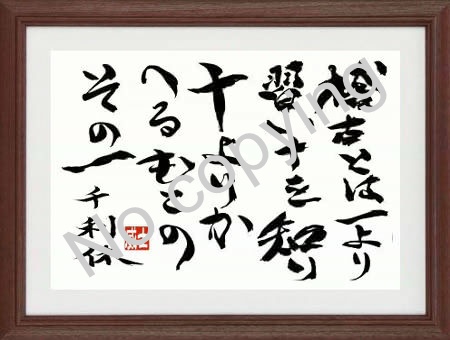 稽古とは一より
習い十を知り
十よりか
へるもとの
その一
千利休
No copying